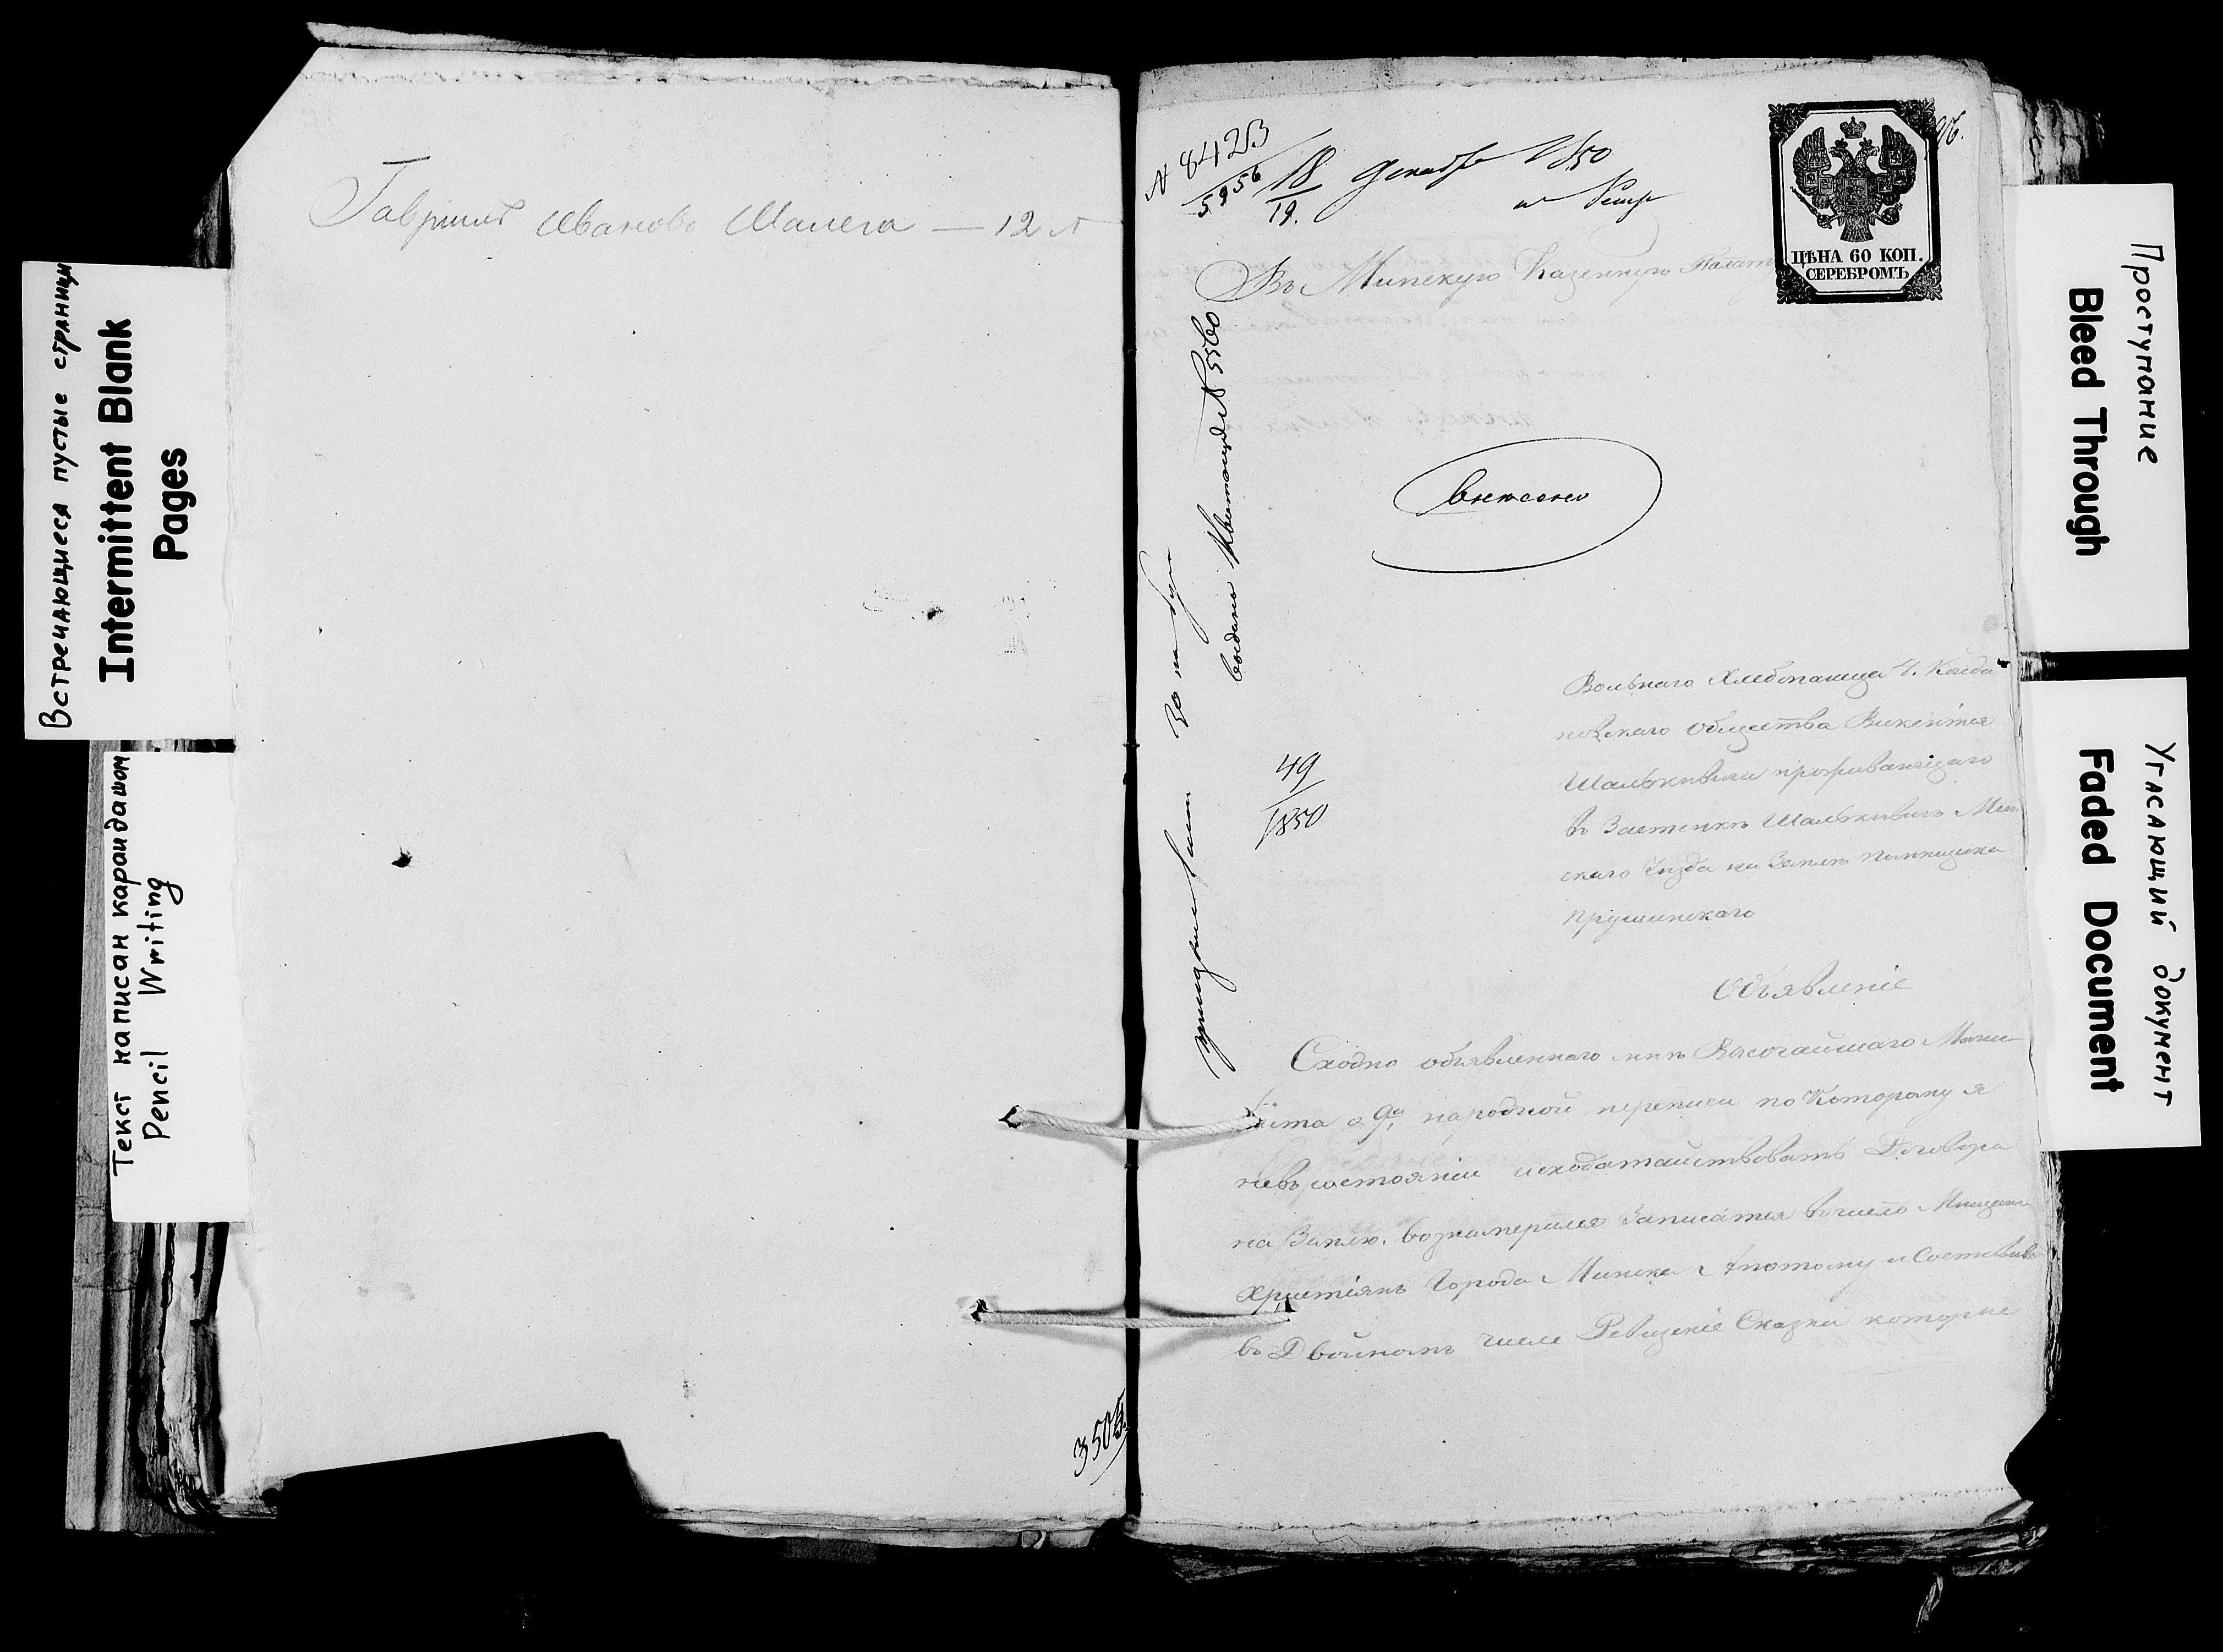 Встречающиеся пустые страницы
Intermittent Blank
Pages
Текст написан карандашом
Pencil Writing
Гавріилъ Ивановъ Шапега — 12 л
350
N 8423
5956
18
19.
Декабря 1850
ЦѢНА 60 КОП.
СЕРЕБРОМЪ
Въ Минскую Казенную Палату
выдана Квитанція N 5560
внесено
49
1850
Вольнаго Хлебопашца
новскаго общества Викентія
проживающаго
въ Застенкѣ
скаго уѣзда на Землѣ помещика
Прушинскаго
Объявленіе
Сходно объявленнаго мнѣ Высочайшаго Мани
феста о 9й народной переписи по Которому я
невъ состояніи исходатайствовать Договора
на Землю. вознамерился Записатся въ число Мещанъ
Христіянъ Города Минска Апотому и Составивъ
въ Двойномъ числе Ревизскіе Сказки которые
Проступание
Bleed Through
Угасающий документ
Faded Document